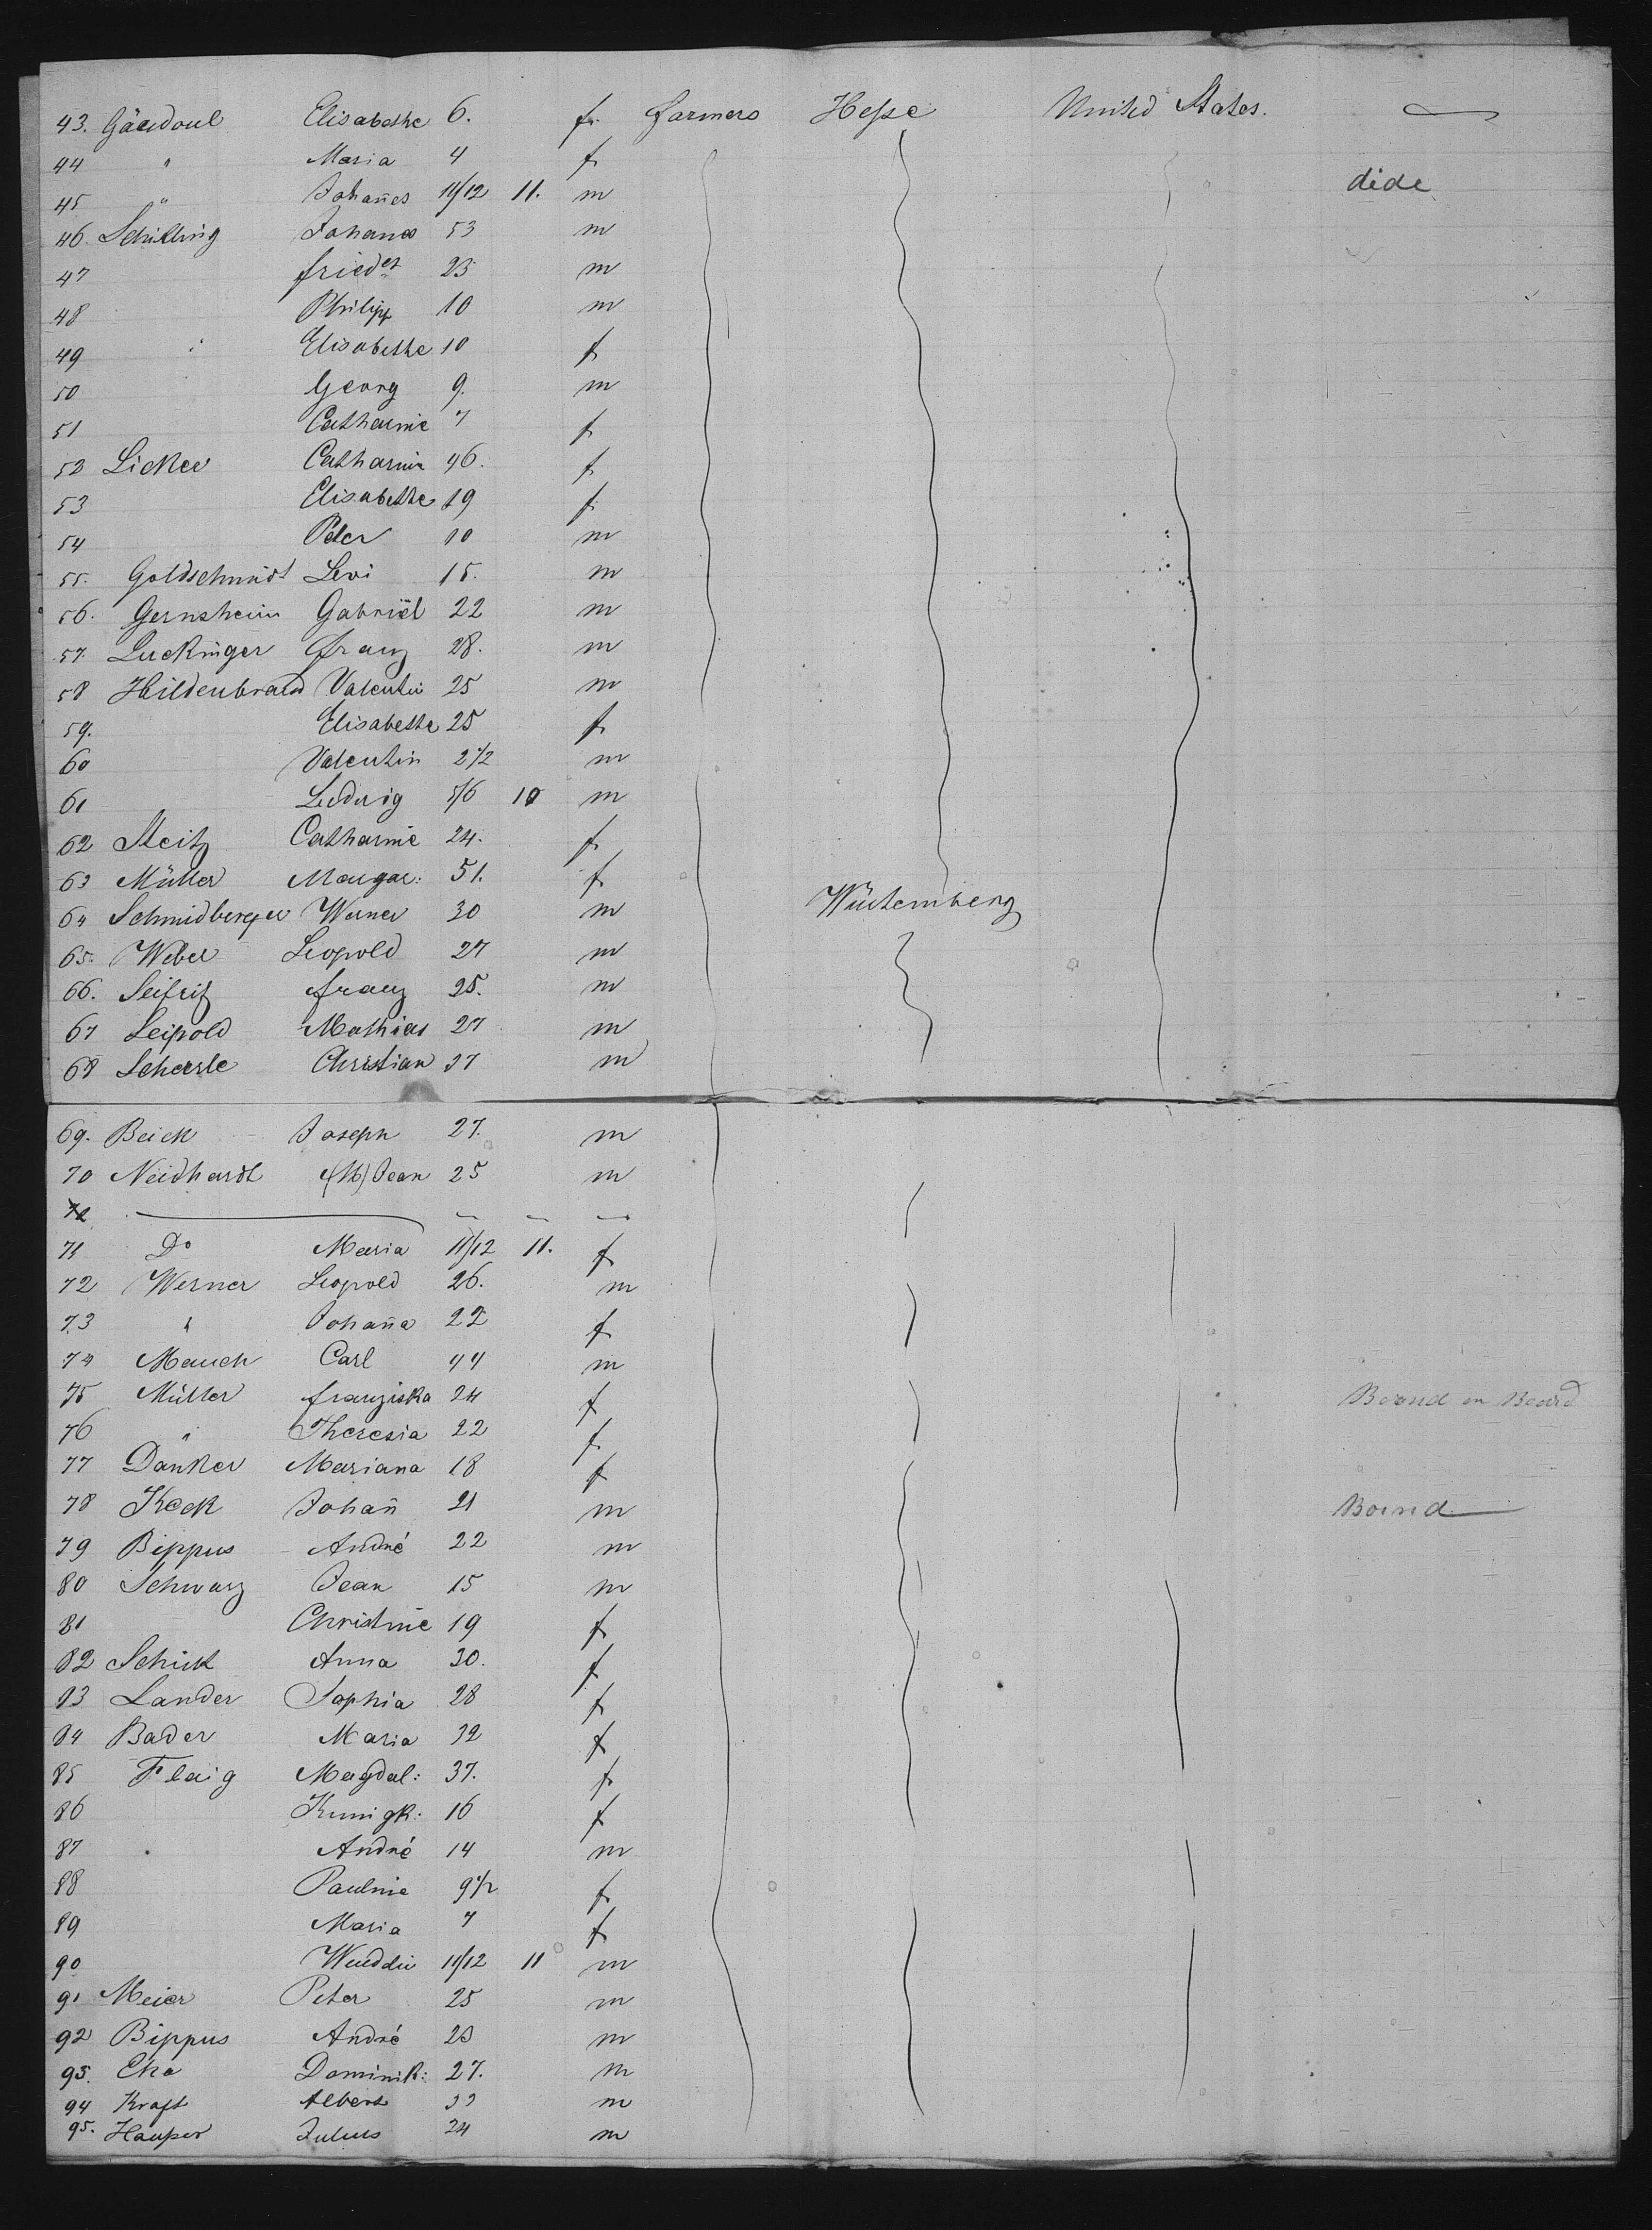 43. Gäudoul Elisabethe 6. f. farmers Hesse United States.
44 " Maria 4 f
45 " Johan̄es 11/12 11. m dide
46. Schilling Johanes 53 m
47 fried er 23 m
48 Philipp 10 m
49 " Elisabethe 10 f
50 Georg 9. m
51 Catharine 7 f
52 Licker Catharin 46. f
53 Elisabethe 19 f
54 Peter 10 m
55. Goldschmidt Levi 15. m
56. Gernsheim Gabriël 22 m
57. Luckinger franz 28. m
58 Hildenbrand Valentin 25 m
59. Elisabethe 25 f
60 Valentin 2 1/2 m
61 Ludwig 5/6 10 m
62 Steitz Catharine 24. f
63 Müller Margar: 51. f
64 Schmidberger Werner 30 m Würtemberg
65. Weber Leopold 27 m
66. Seifritz franz 25. m
67 Leipold Mathias 27 m
68 Scheerle Christian 37 m
69. Beick Joseph 27. m
70 Neidhardt (M) Jean 25 m
72
71 Do Maria 11/12 11. f
72 Werner Leopold 26. m
73 " Johan̄a 22 f
74 Mauch Carl 44 m
75 Müller franziska 24 f Bound on Board
76 " Theresia 22 f
77 Danker Mariana 18 f
78 Keck Johan̄ 21 m Bound
79 Bippus André 22 m
80 Schwarz Jean 15 m
81 Christine 19 f
82 Schick Anna 30. f
83 Lander Sophia 28 f
84 Bader Maria 32 f
85 Flaig Magdal: 37. f
86 Kunigk: 16 f
87 André 14 m
88 Pauline 9 1/2 f
89 Maria 7 f
90 Wendelin 11/12 11 m
91 Meier Peter 25 m
92 Bippus André 23 m
93. Eha Dominik: 27. m
94 Kraft Albert 33 m
95. Hauser Julius 24 m